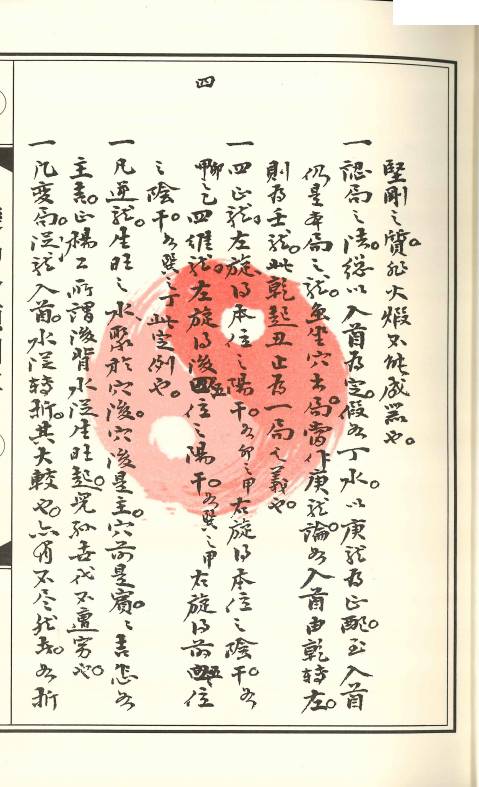 四
堅剛之質。非火煅不能成器也。
一認局之法。總以入首為定。假如丁水。以庚龍為正配。至入首
仍是本局之龍。無坐穴出局。當作庚龍論。如入首由乾轉左。
則為壬龍。此乾起丑止為一局之義也。
一四正龍。左旋得本位之陽干。如卯之甲右旋得本位之陰干。如
卯之乙四維龍。左旋得後四位之陽干。如巽之甲右旋得前四位
之陰干。如巽之丁此定例也。
一凡逆龍生旺之水聚於穴後。穴後是主。穴前是賓。之書怎如
主書。正楊公所謂後背水從生旺起。兒孫世代不遭窮也。
一凡變局。從龍入首。水從轉折。其大較也。亦有不尽然者。如折